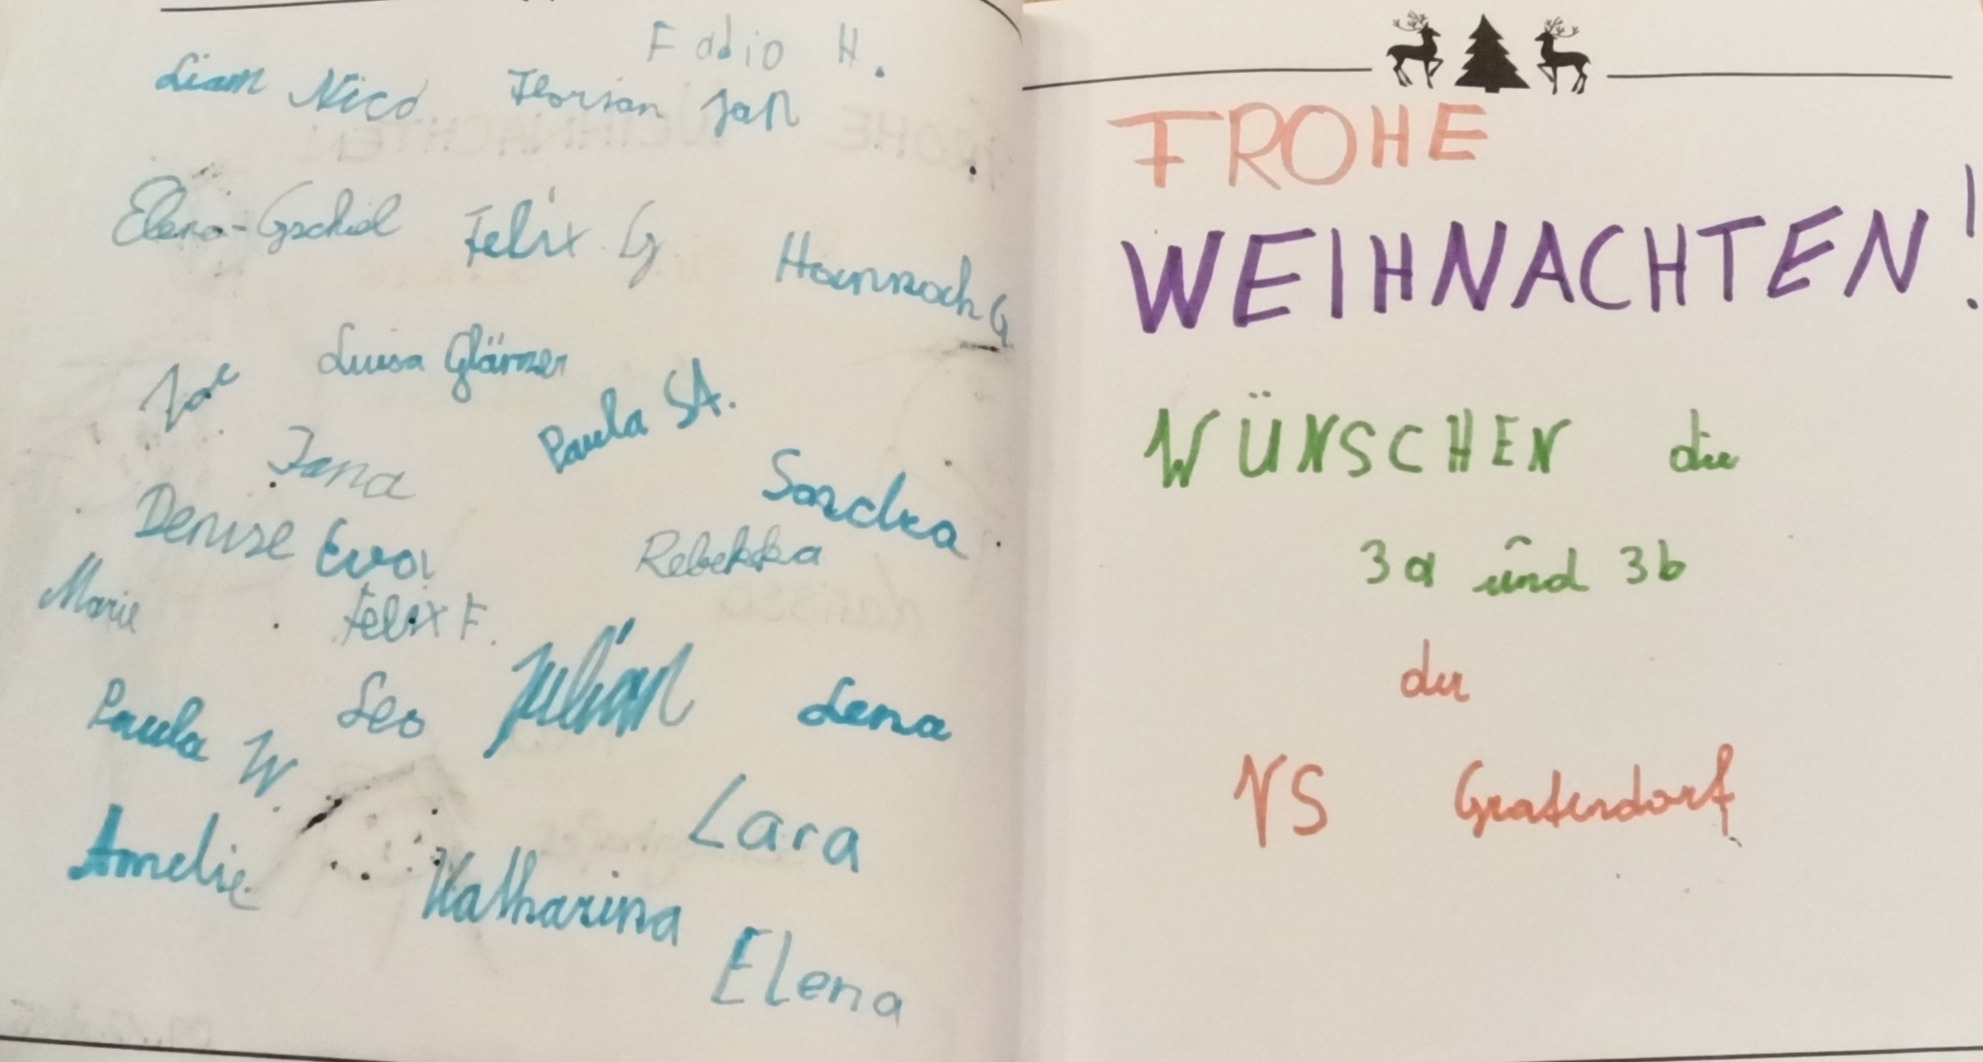 Fabio H.
Liam Nico Florian Jan
Elena-Gschiel Felix G Hannah G
Luisa Glärner
Zoe
Paula St.
Jana
Sandra
Denise Eva
Rebekka
Marie Felix F.
Paula W. Leo Julian Lena
Lara
Amelie Katharina
Elena
FROHE
WEIHNACHTEN!
WÜNSCHEN die
3a und 3b
der
VS Grafendorf